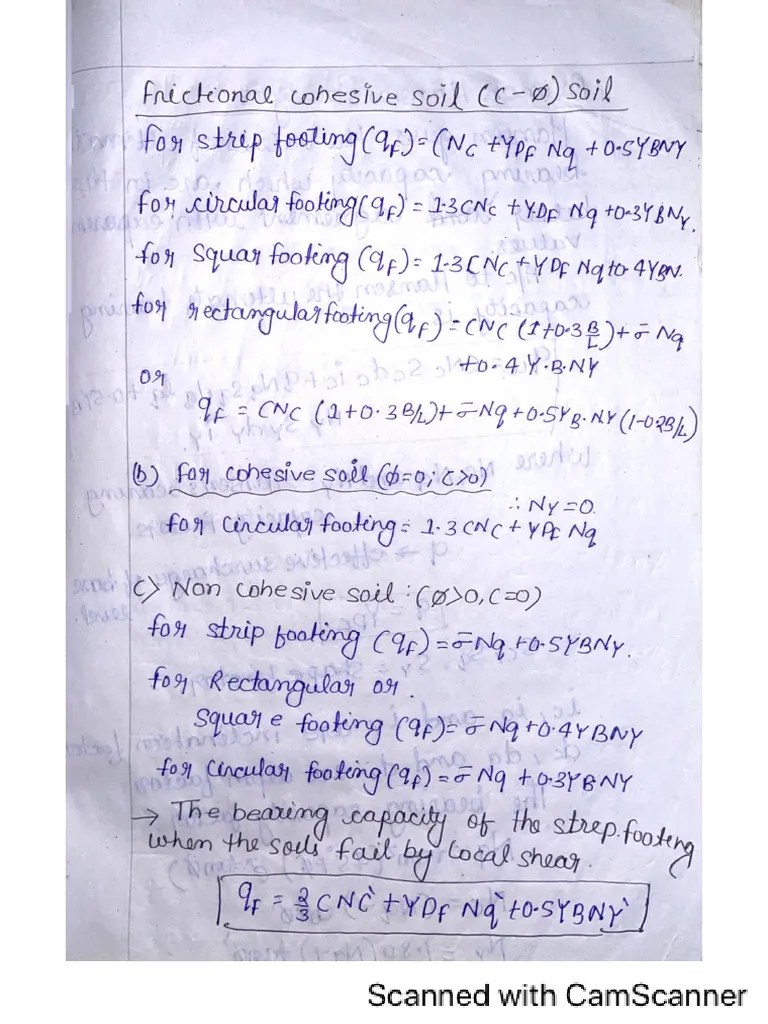 Frictional cohesive soil (C-Ø) soil
for strip footing (qf) = CNc + γDf Nq + 0.5γBNγ
for circular footing (qf) = 1.3CNc + γ.Df Nq + 0.3γBNγ.
for Squar footing (qf) = 1.3CNc + γDf Nq to 4γBN.
for rectangular footing (qf) = CNc (1+0.3 B/L) + σ̄ Nq
+0.4 γ.B.Nγ
or
qf = CNc (1+0.3B/L) + σ̄Nq + 0.5γB.Nγ (1-0.2B/L)
(b) for cohesive soil (Ø=0; C>0)
∴ Nγ=0.
for circular footing = 1.3 CNc + γDf Nq
C) Non cohesive soil : (Ø>0, C=0)
for strip footing (qf) = σ̄Nq + 0.5γBNγ.
for Rectangular or.
Square footing (qf) = σ̄ Nq + 0.4γBNγ
for circular footing (qf) = σ̄ Nq + 0.3γBNγ
→ The bearing capacity of the strep.footing
when the soils fail by local shear.
qf = 2/3 CNc' + γDf Nq' + 0.5γBNγ'
Scanned with CamScanner